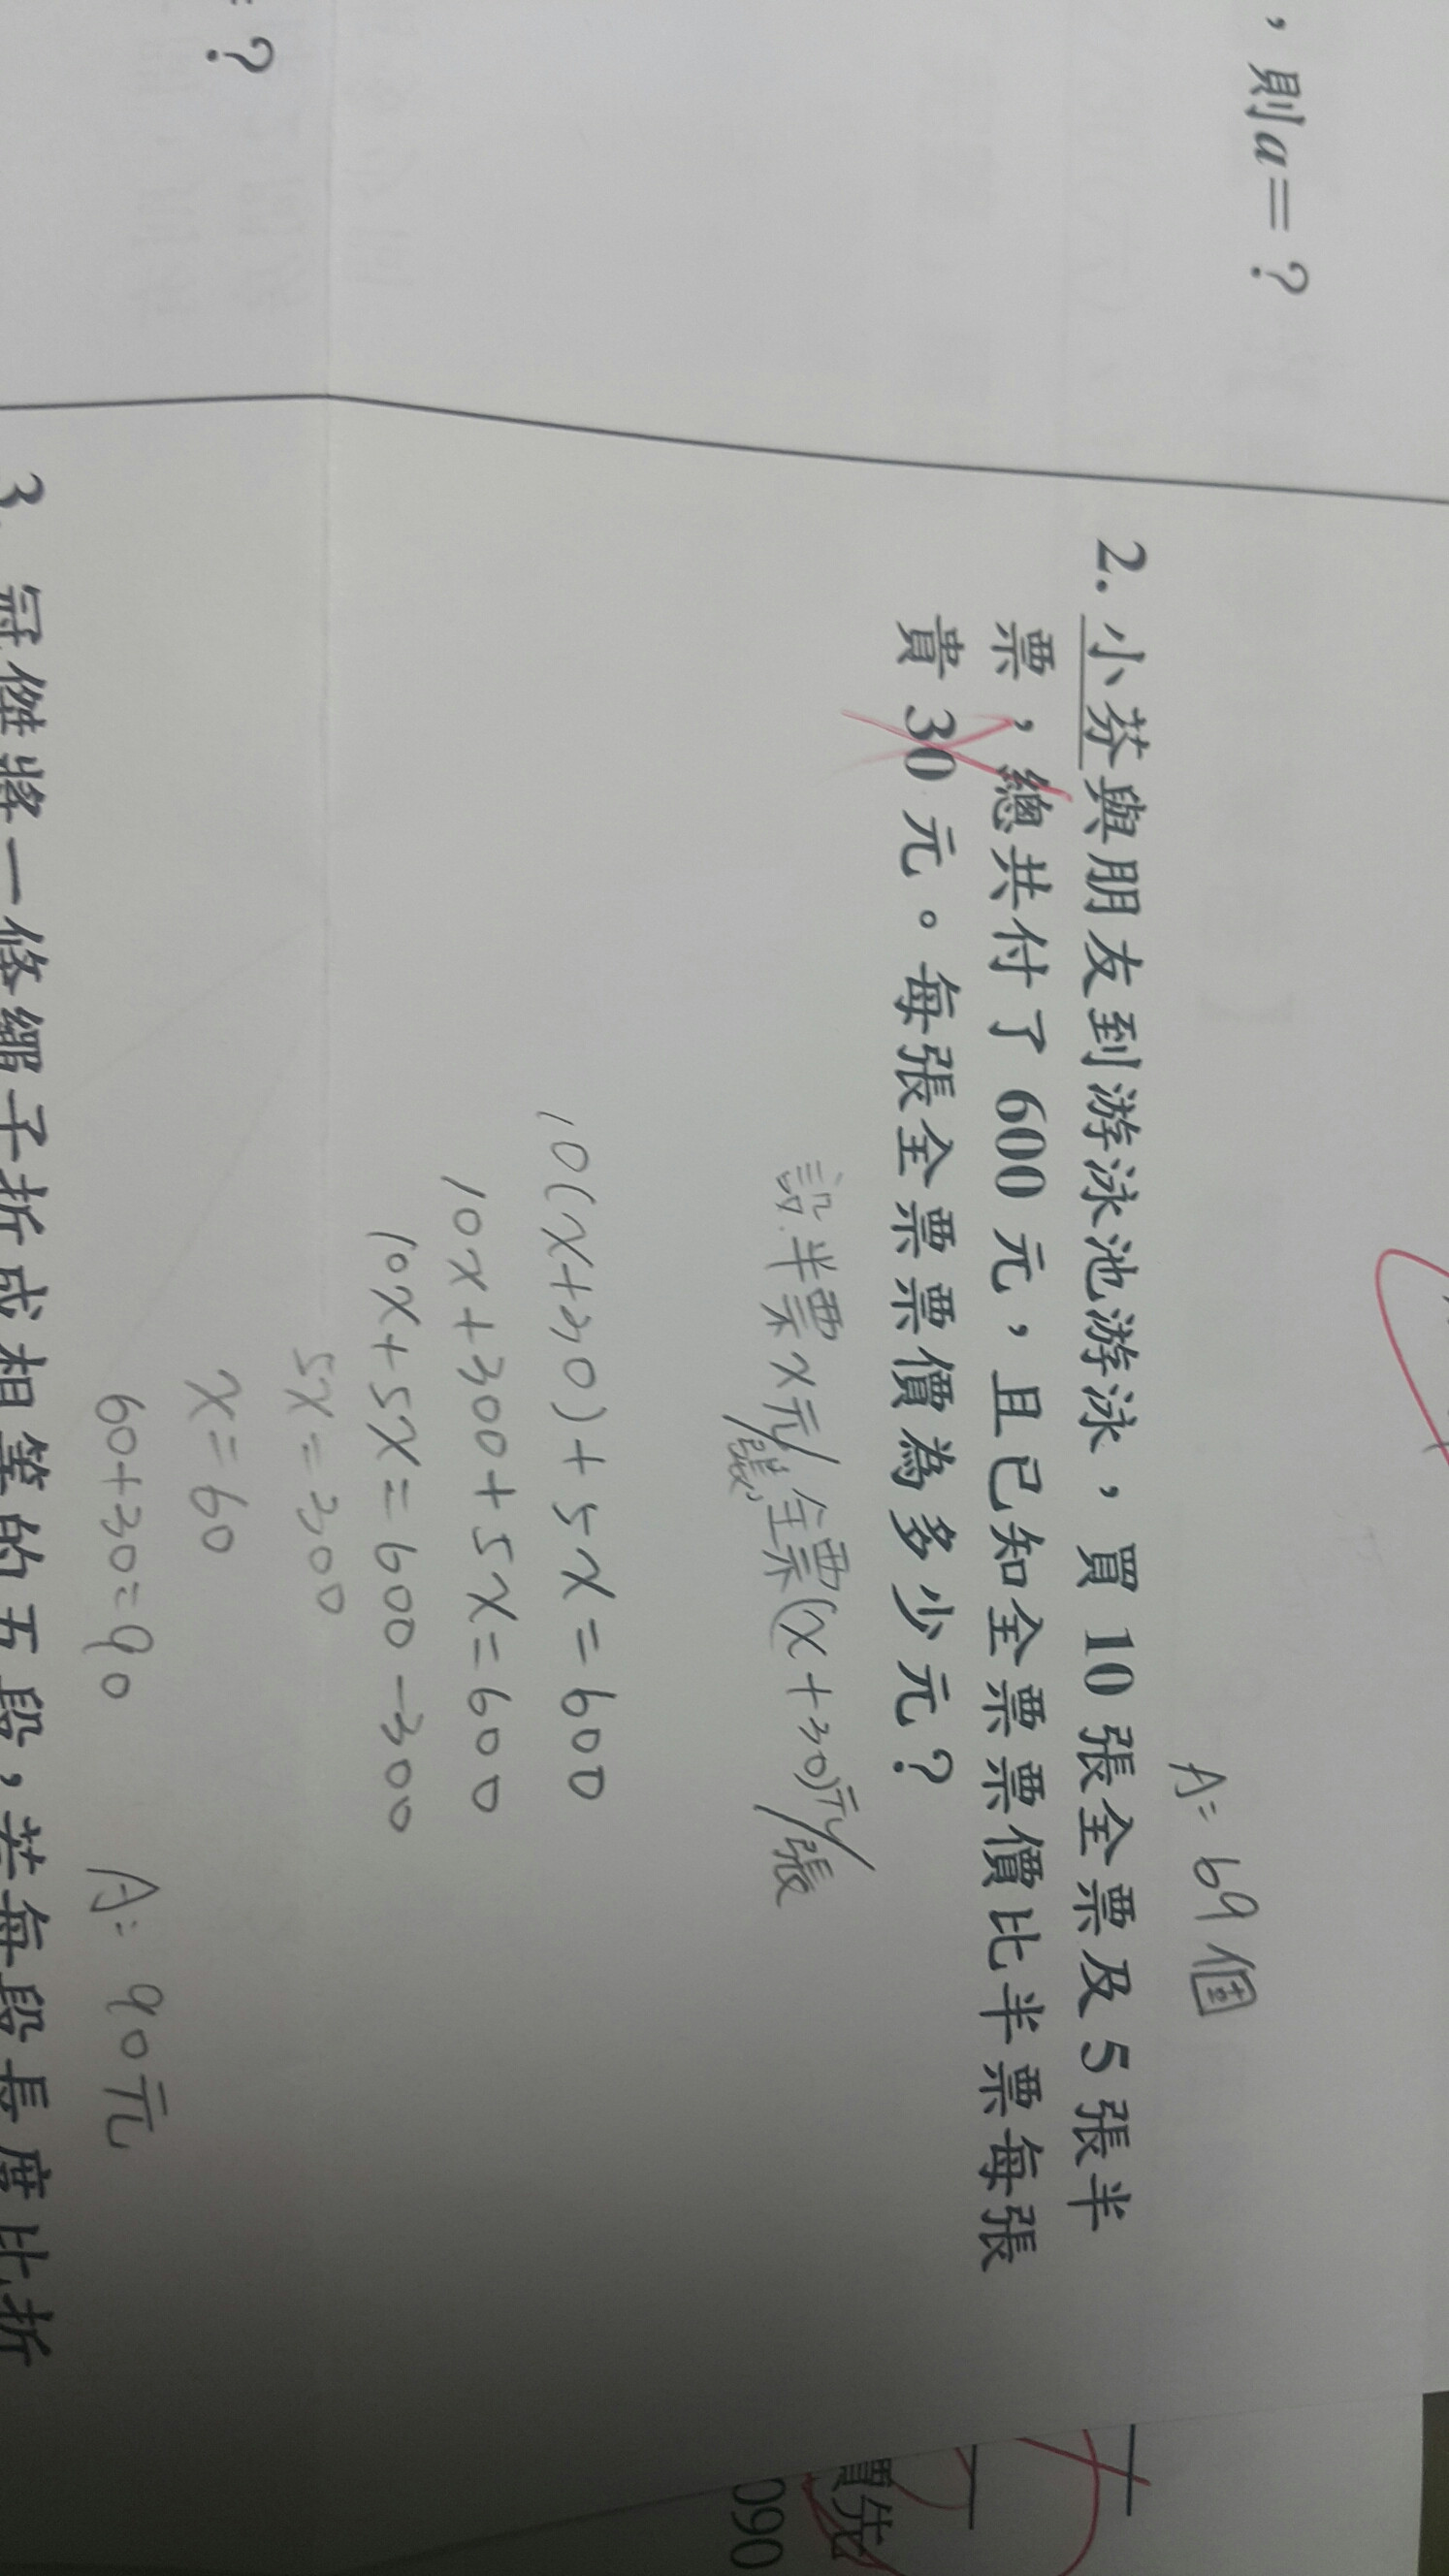 ，則a=？
=？
A=69個
2. 小芬與朋友到游泳池游泳，買 10 張全票及 5 張半
票，總共付了 600 元，且已知全票票價比半票每張
貴 30 元。每張全票票價為多少元？
設半票x元/張，全票(x+30)元/張
10(x+30)+5x=600
10x+300+5x=600
10x+5x=600-300
5x=300
x=60
60+30=90
A: 90元
3. 冠傑將一條繩子折成相等的五段，若每段長度比折
買先
090